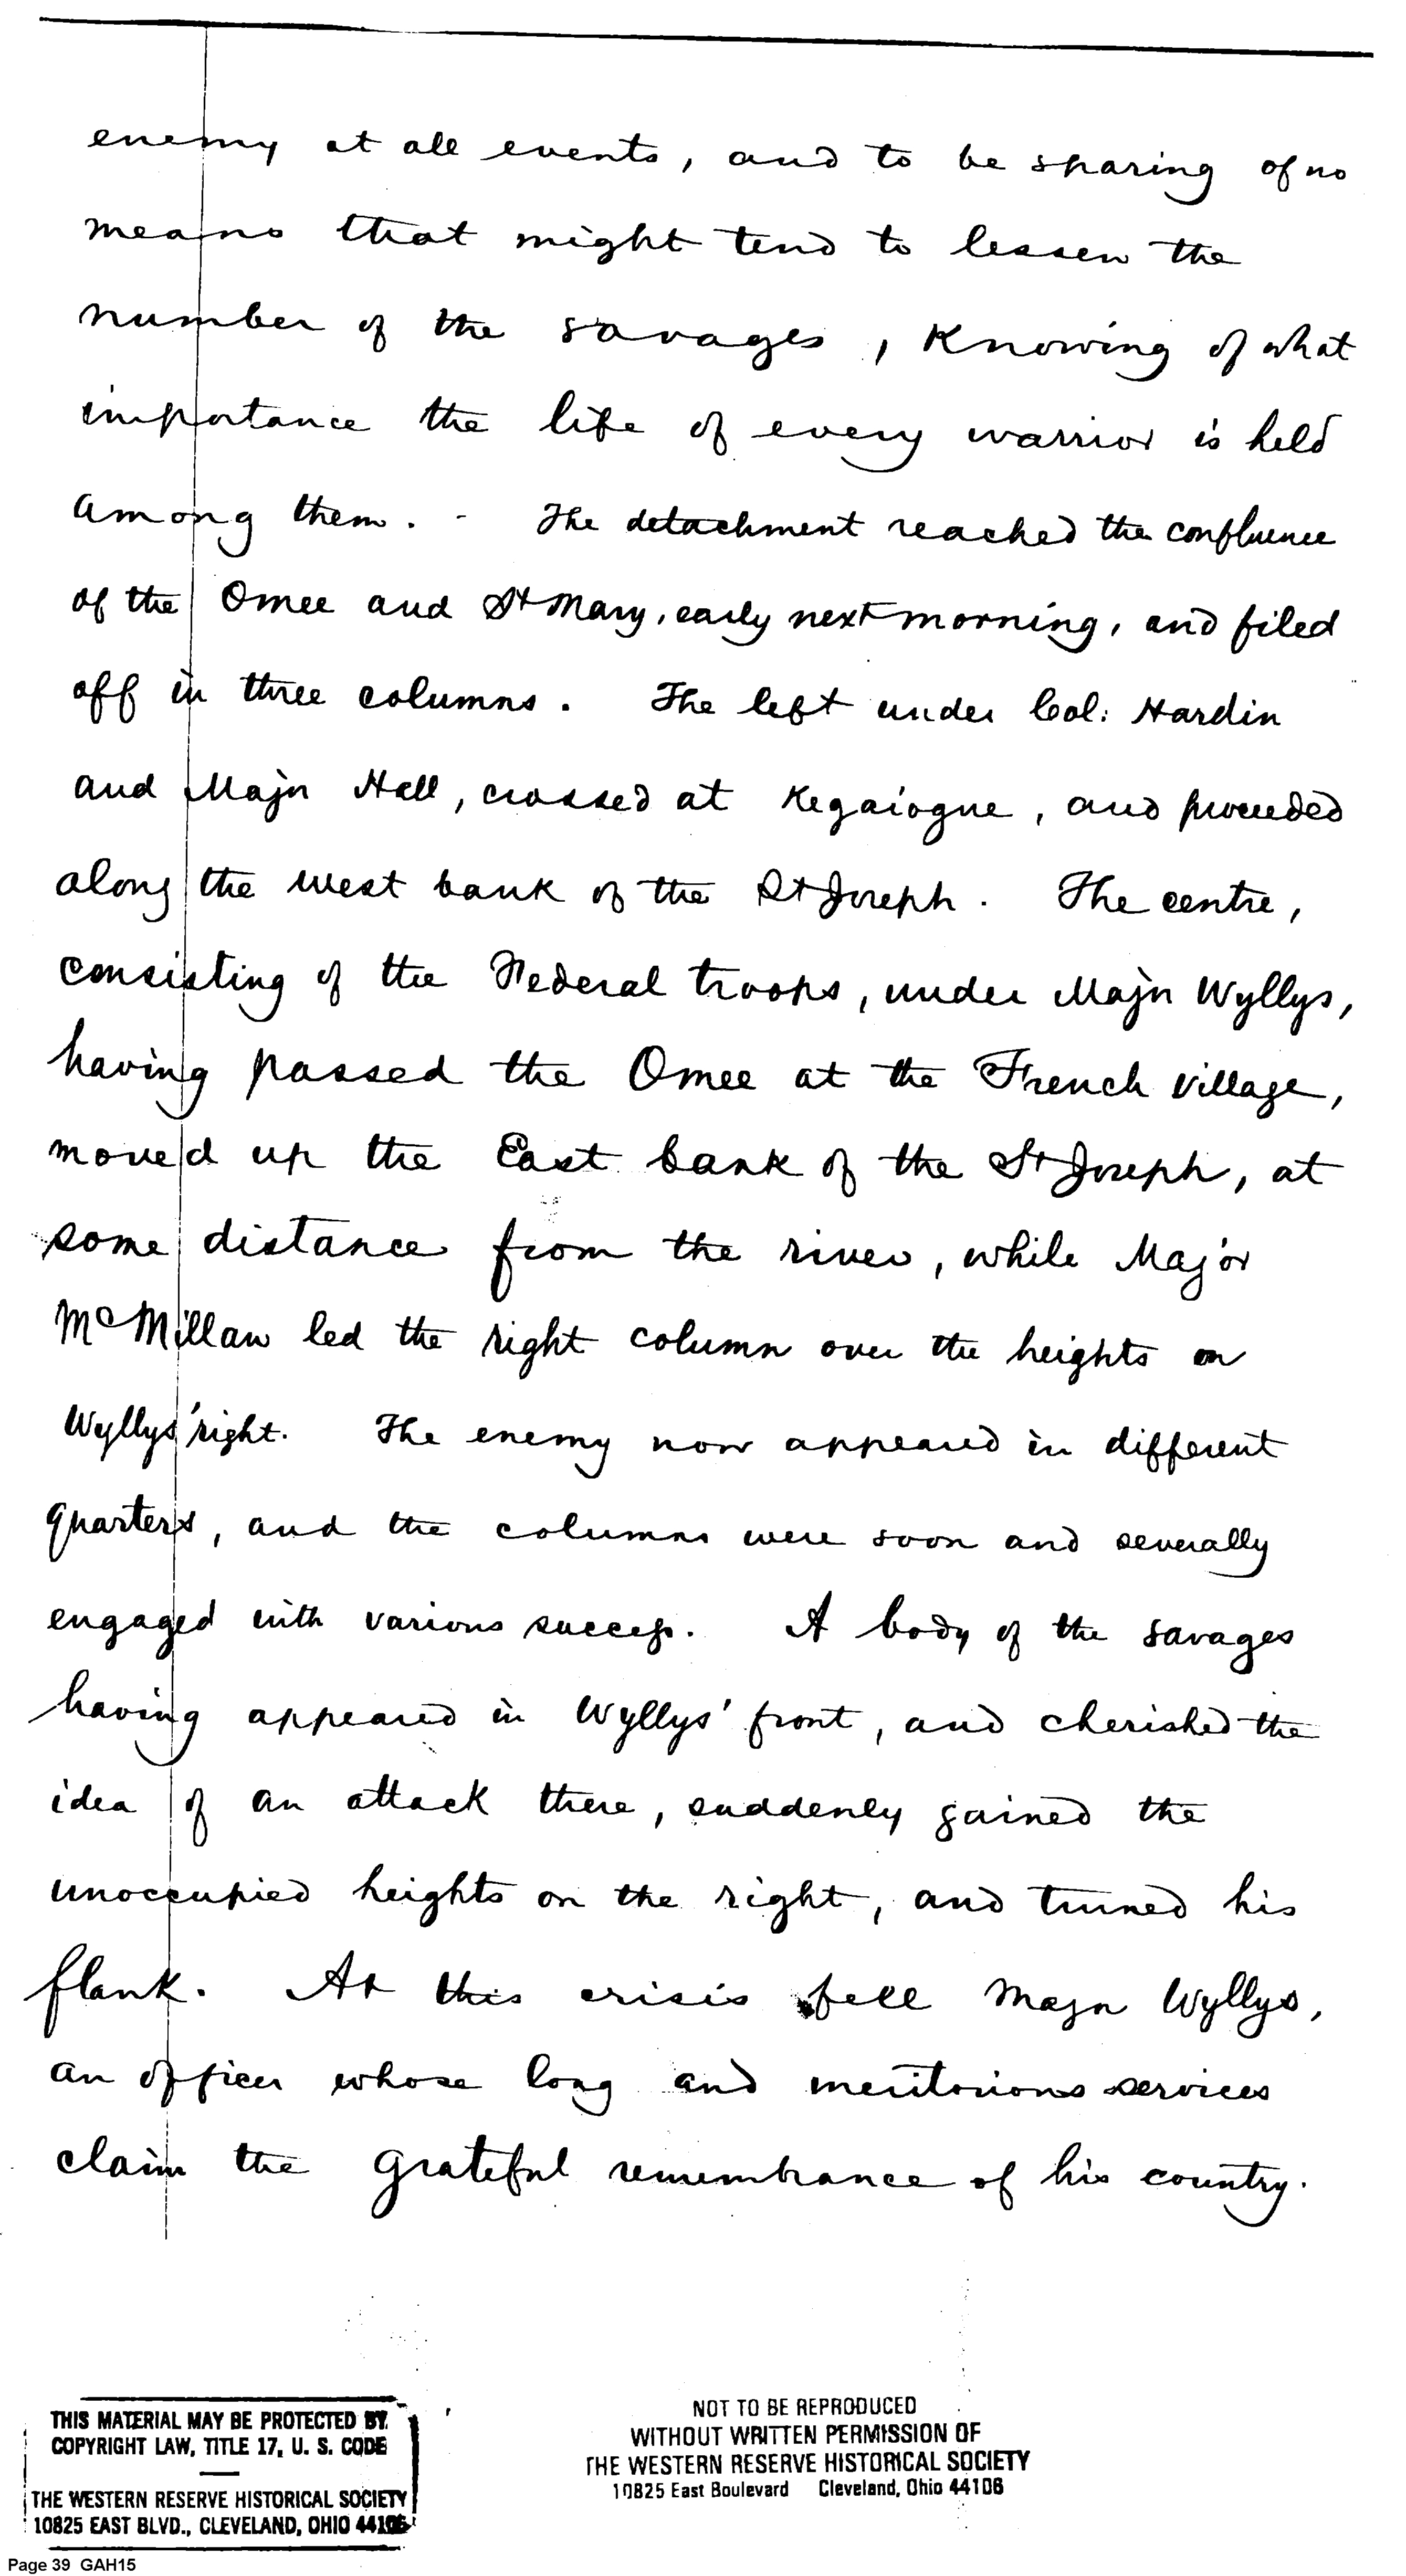 enemy at all events, and to be sparing of no
means that might tend to lessen the
number of the savages, Knowing of what
importance the life of every warrior is held
among them. - The detachment reached the confluence
of the Omee and St Mary, early next morning, and filed
off in three columns. The left under Col: Hardin
and Major Hall, crossed at Kegaiogue, and proceeded
along the west bank of the St Joseph. The centre,
consisting of the Federal troops, under Major Wyllys,
having passed the Omee at the French village,
moved up the East bank of the St Joseph, at
some distance from the river, while Major
McMillan led the right column over the heights on
Wyllys' right. The enemy now appeared in different
quarters, and the columns were soon and severally
engaged with various success. A body of the savages
having appeared in Wyllys' front, and cherished the
idea of an attack there, suddenly gained the
unoccupied heights on the right, and turned his
flank. At this crisis fell Major Wyllys,
an officer whose long and meritorious services
claim the grateful remembrance of his country.
THIS MATERIAL MAY BE PROTECTED BY
COPYRIGHT LAW, TITLE 17, U. S. CODE
THE WESTERN RESERVE HISTORICAL SOCIETY
10825 EAST BLVD., CLEVELAND, OHIO 44106
NOT TO BE REPRODUCED
WITHOUT WRITTEN PERMISSION OF
THE WESTERN RESERVE HISTORICAL SOCIETY
10825 East Boulevard Cleveland, Ohio 44106
Page 39 GAH15